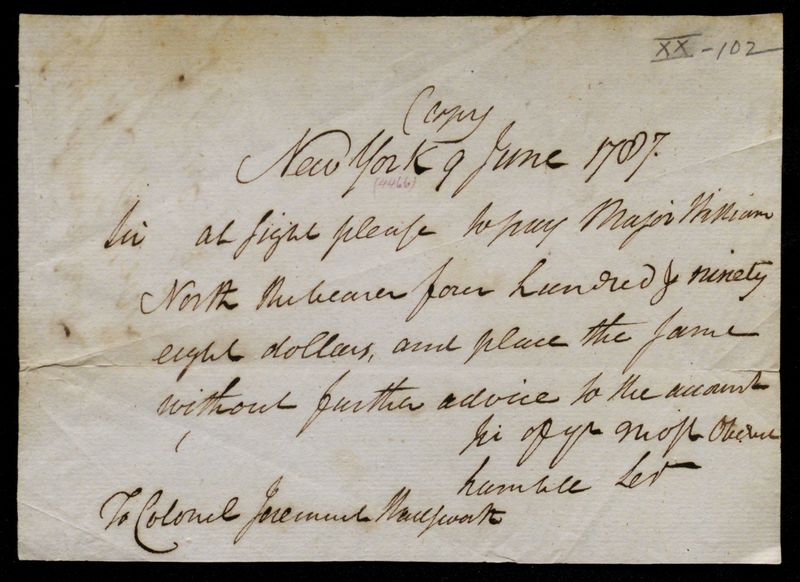 XX-102
Copy
New York 9 June 1787.
(4466)
Sir at sight please to pay Major William
North the bearer four hundred & ninety
eight dollars, and place the same
without further advice to the account
Sir of yr most Obedient
humble Servt
To Colonel Jeremiah Wadsworth